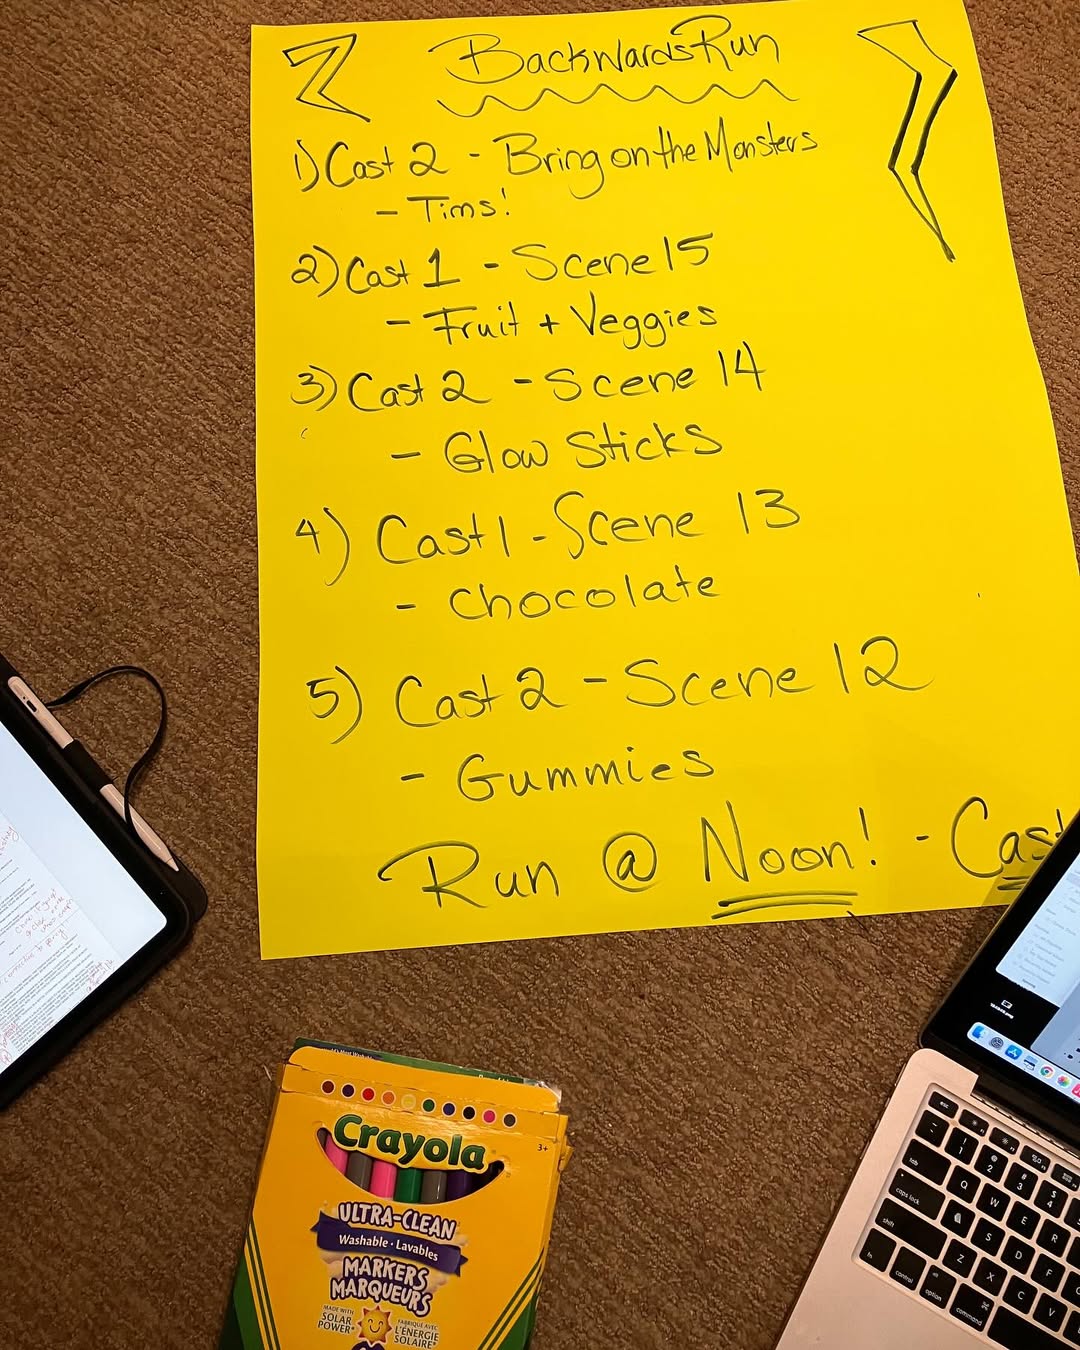 Backwards Run
1) Cast 2 - Bring on the Monsters
- Tims!
2) Cast 1 - Scene 15
- Fruit + Veggies
3) Cast 2 - Scene 14
- Glow Sticks
4) Cast 1 - Scene 13
- Chocolate
5) Cast 2 - Scene 12
- Gummies
Run @ Noon! - Cast
Crayola
3+
ULTRA-CLEAN
Washable · Lavables
MARKERS
MARQUEURS
MADE WITH
SOLAR
POWER*
FABRIQUÉ AVEC
L'ÉNERGIE
SOLAIRE*
esc
! 1 @ 2 # 3 $ 4
tab Q W E R
caps lock A S D F
shift Z X C V
fn control option command